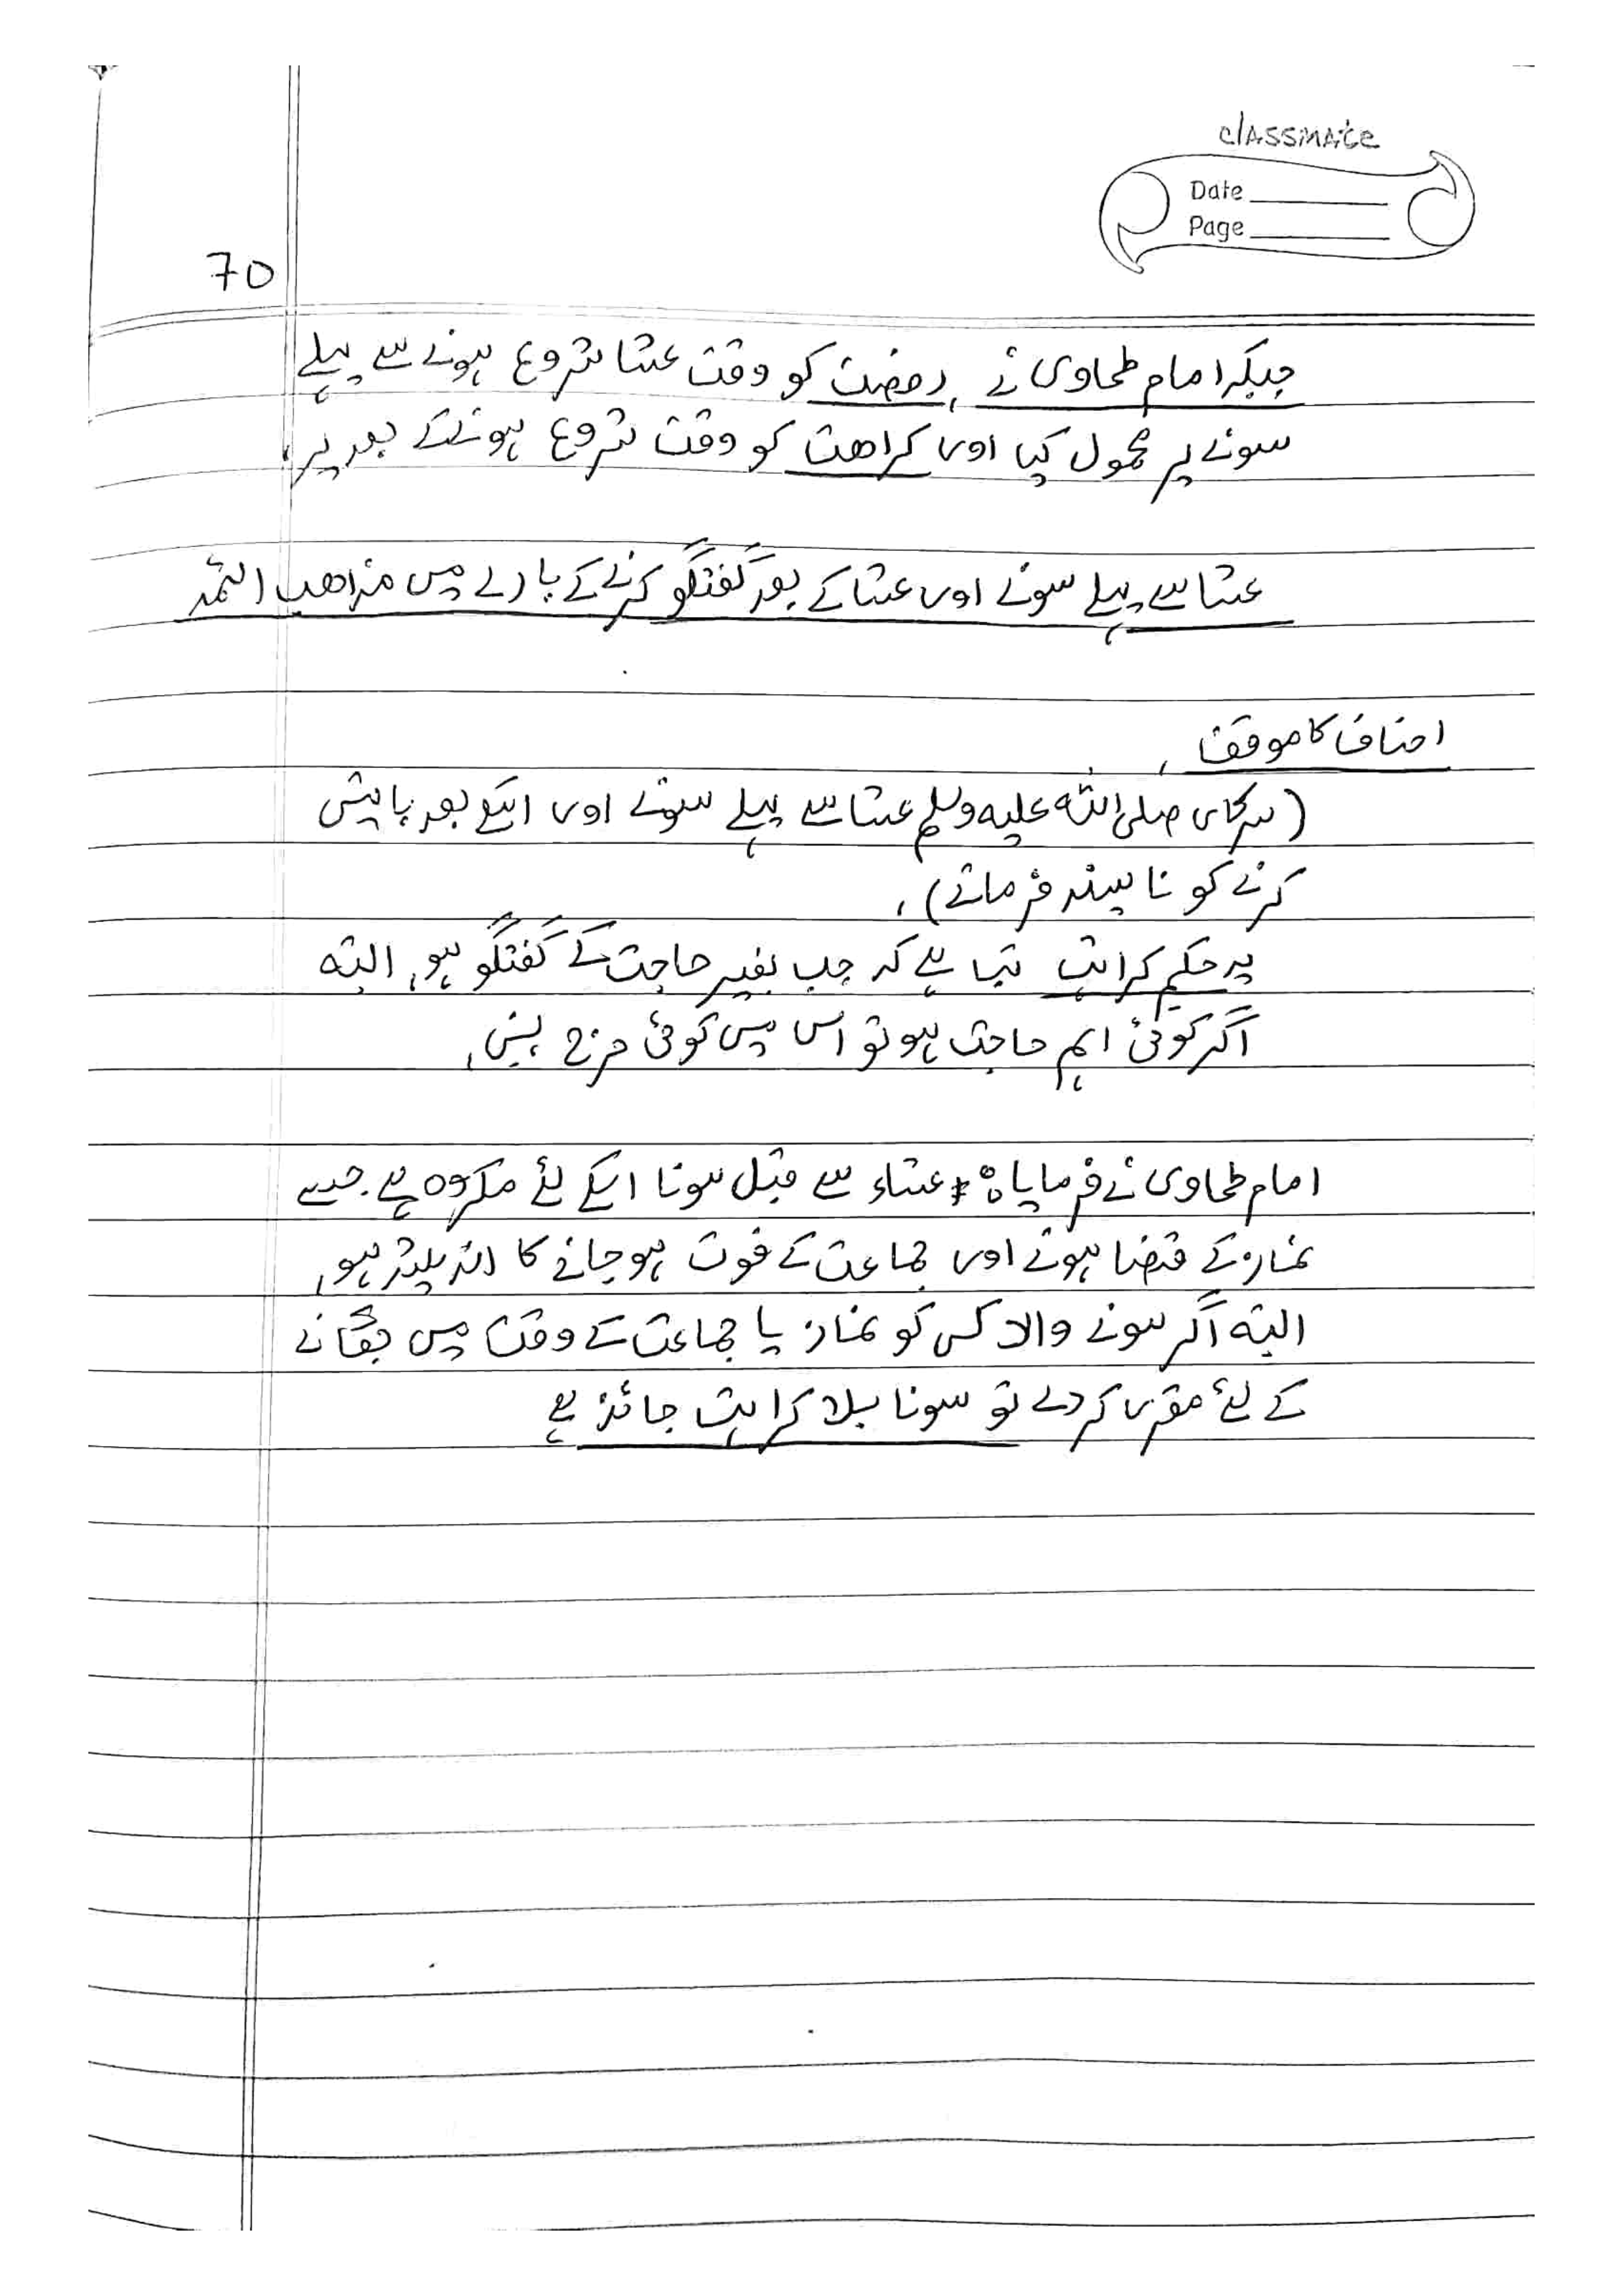 classmate
Date
Page
70
جبکہ امام طحاوی نے رخصت کو وقت عشا شروع ہونے سے پہلے
سونے پر محمول کیا اور کراھت کو وقت شروع ہونے کے بعد پر،
عشا سے پہلے سونے اور عشا کے بعد گفتگو کرنے کے بارے میں مذاھب ائمہ
احناف کا موقف،
(سرکار صلی اللہ علیہ وسلم عشا سے پہلے سونے اور اسکے بعد باتیں
کرنے کو نا پسند فرماتے)،
یہ حکم کراہت تب ہے کہ جب بغیر حاجت کے گفتگو ہو، البتہ
اگر کوئی اہم حاجت ہو تو اس میں کوئی حرج نہیں،
امام طحاوی نے فرمایا: عشاء سے قبل سونا اسکے لئے مکروہ ہے جسے
نماز کے قضا ہونے اور جماعت کے فوت ہو جانے کا اندیشہ ہو،
البتہ اگر سونے والا کسی کو نماز یا جماعت کے وقت میں جگانے
کے لئے مقرر کر دے تو سونا بلا کراہت جائز ہے